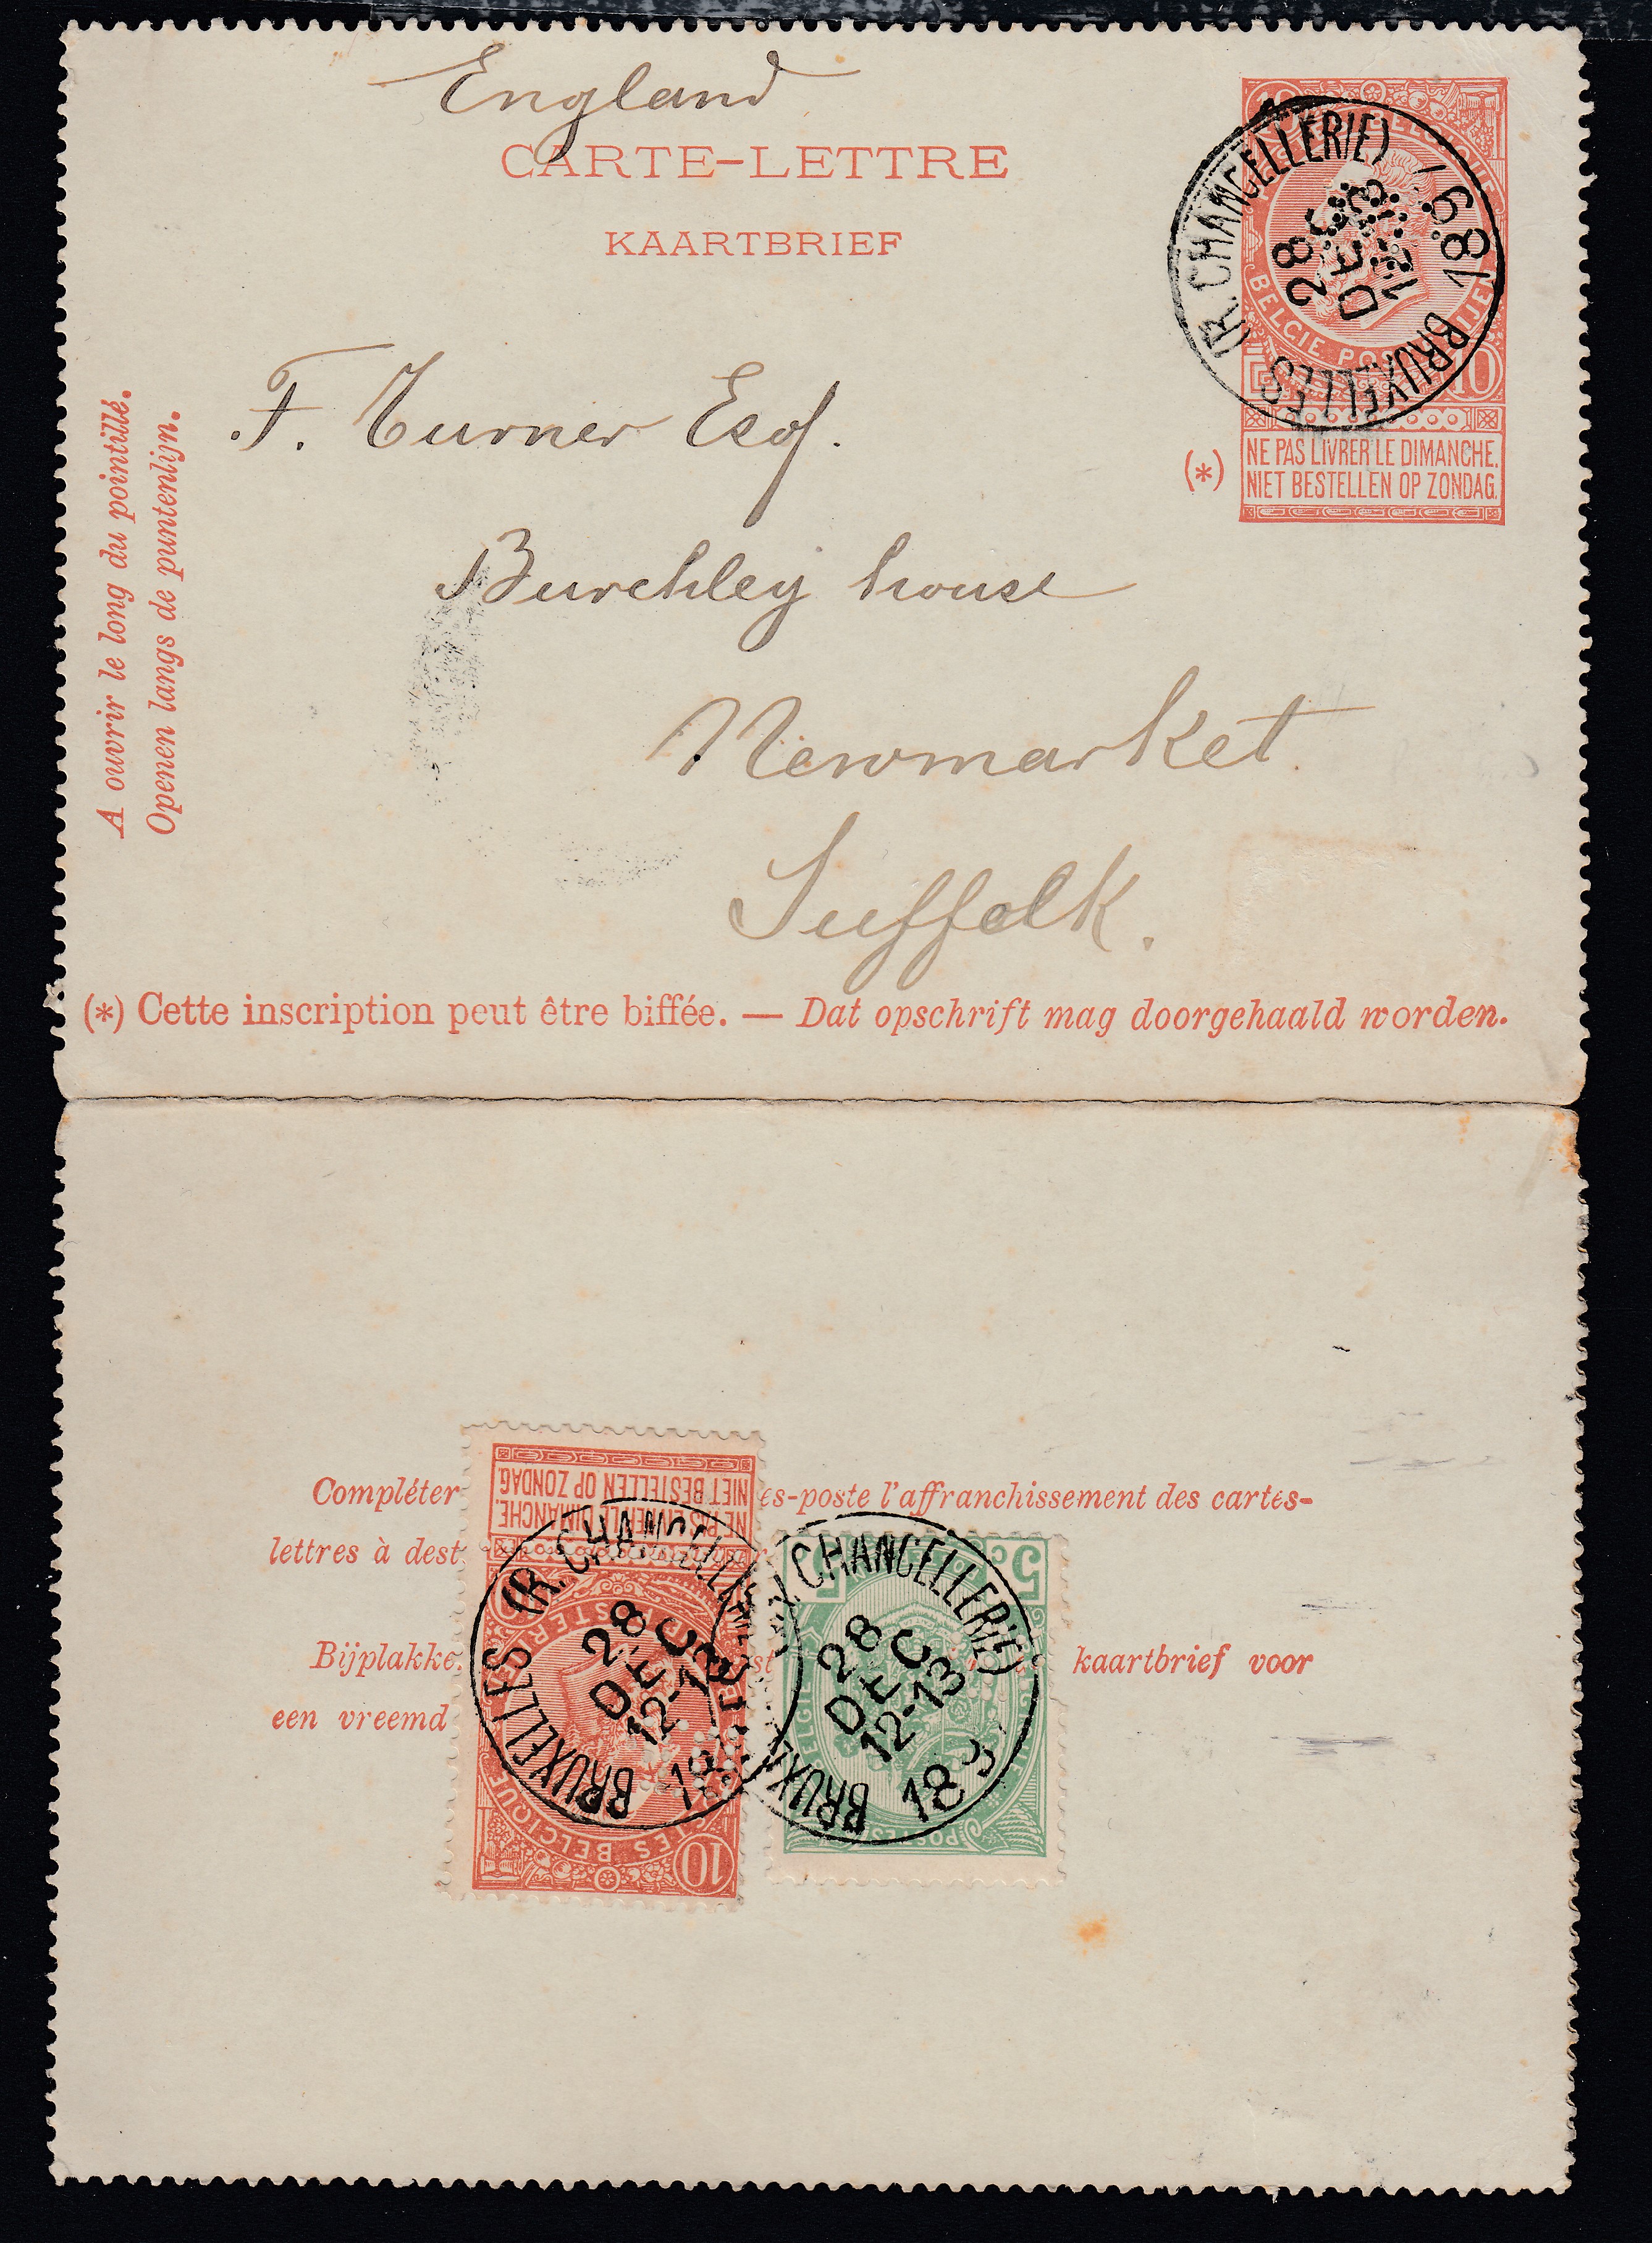 England
CARTE-LETTRE
KAARTBRIEF
BRUXELLES (R. CHANCELLERIE)
28
DEC
12-13
189
BELGIE POS
10
(*)
NE PAS LIVRER LE DIMANCHE.
NIET BESTELLEN OP ZONDAG.
A ouvrir le long du pointillé.
Openen langs de puntenlijn.
F. Turner Esq.
Burchley house
Newmarket.
Suffolk.
(*) Cette inscription peut être biffée. — Dat opschrift mag doorgehaald worden.
NE PAS LIVRER LE DIMANCHE.
NIET BESTELLEN OP ZONDAG.
Compléter es-poste l'affranchissement des cartes-
lettres à dest
Bijplakke kaartbrief voor
een vreemd
BRUXELLES (R. CHANCELLERIE)
28
DEC
12-13
189
BELGIQUE
10
5
5
CHANCELLERIE)
28
DEC
12-13
189
BRUXE
POSTES